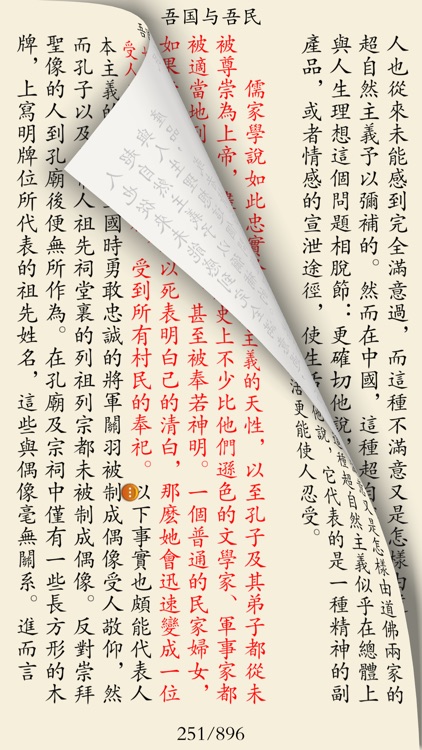 吾国与吾民
人也從來未能感到完全滿意過，而這種不滿意又是怎樣由道佛兩家的
超自然主義予以彌補的。然而在中國，這種超自然主義似乎在總體上
與人生理想這個問題相脫節：更確切他說，它代表的是一種精神的副
產品，或者情感的宣泄途徑，使生活更能使人忍受。
儒家學說如此忠實 主義的天性，以至孔子及其弟子都從未
被尊崇為上帝， 史上不少比他們遜色的文學家、軍事家都
被適當地列 甚至被奉若神明。一個普通的民家婦女，
如果 以死表明白己的清白，那麽她會迅速變成一位
受人 受到所有村民的奉祀。以下事實也頗能代表人
本主義的 國時勇敢忠誠的將軍關羽被制成偶像受人敬仰，然
而孔子以及 人祖先祠堂裏的列祖列宗都未被制成偶像。反對崇拜
聖像的人到孔廟後便無所作為。在孔廟及宗祠中僅有一些長方形的木
牌，上寫明牌位所代表的祖先姓名，這些與偶像毫無關系。進而言
251/896